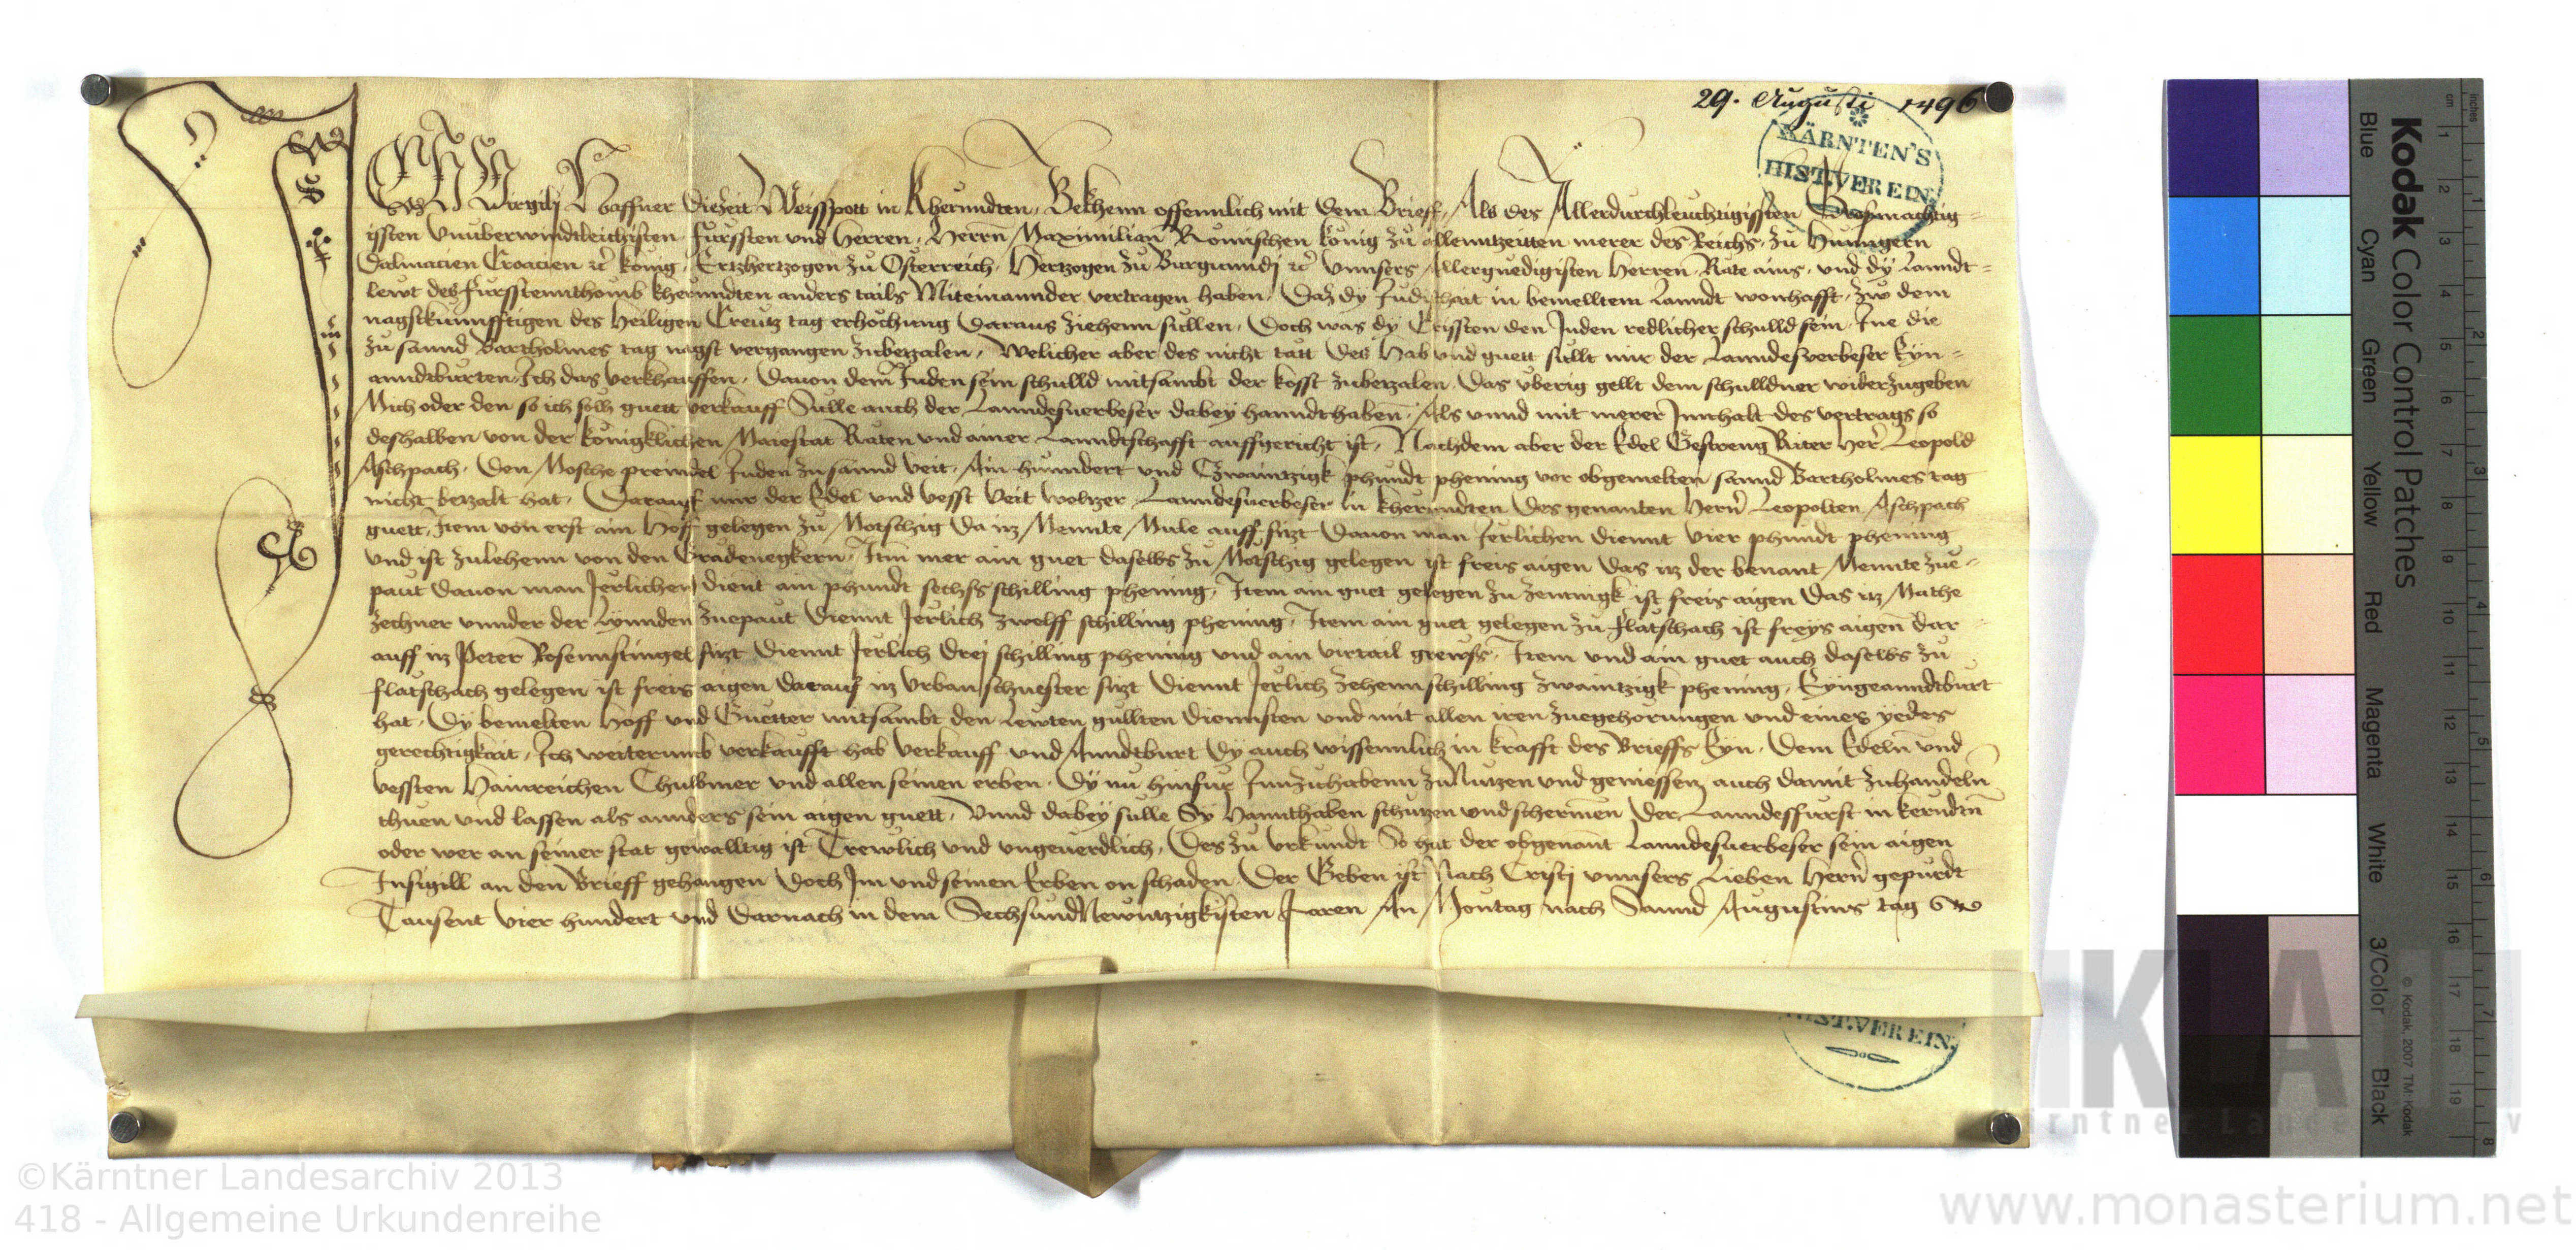 29. Augusti 1496
KÄRNTEN'S
HIST. VEREIN.
Ich Virgilj Haffner diezeit Weisspott in Kherundten, Bekhenn offennlich mit dem Brieff, Als des Allerdurchleuchtigissten Grosmachtig-
igsten Vnuberwindtleichisten fürssten und Herren, Herrn Maximilian Romischen konig zu allenntzeitten merer des Reichs, zu Hunngern
Dalmacien Croacien rc konig, Ertzhertzogen zu Österreich, Hertzogen zu Burgunndj rc Vnnsers Allergnedigisten Herren Räte ains, und dy Lanndt-
lewt des fursstennthomb kherunndten anders tails Miteinannder vertragen haben, Daz dy Judischait in bemelltem Lanndt wonhafft, zw dem
nagstkunnfftigen des Heiligen Creutz tag erhochung Daraus ziehenn sullen, Doch was dy Cristen den Juden redlicher schulld sein, Jne die
zu sannd Bartholmes tag nagst vergangen zubetzalen, Welicher aber des nicht tätt des Hab und guett sullt mir der Lanndesverbeser Eyn-
anndtburten, Ich das verkhauffen, Dauon dem Juden sein schulld mitsambt der kosst zubetzalen, Das vberig gellt dem schulldner widerzugeben
Mich oder den so ich solh guett verkauff Sulle auch der Lanndesuerbeser dabey hanndthaben, Als vnnd mit merer Innhalt des vertrags so
deshalben von der königklichen Maiestat Räten und ainer Lanndtschafft auffgericht ist, Nachdem aber der Edel Gestreng Riter Her Leopold
Aschpach, Den Mosche preindel Juden zu sannd Veit, Ain hunndert und Czwaintzigk phundt phening vor obgemelten sannd Bartholmes tag
nicht betzalt hat, Darauff mir der Edel und vesst Veit Weltzer Lanndesuerbeser in kherundten Des genanten Hern Leopolten Aschpach
guett, Item von erst ain Hoff gelegen zu Motschig da itz Mennte Mule auff sizt Dauon man Jerlichen diennt vier phundt phening
und ist zulehenn von den Gradenegkern, Item mer ain guet daselbs zu Motschig gelegen ist freis aigen Das itz der benant Mennte zue-
paut dauon man Jerlichen dient ain phundt sechs schilling phening, Item ain guet gelegen zu zemnigk ist freis aigen Das itz Mathe
zechner vnnder der Lynnden zuepaut Diennt Jerlich zwelff schilling phening, Item ain guet gelegen zu flatschach ist freys aigen dar
auff itz Peter Rosennstingel sizt Diennt Jerlich Drej schilling phening und ain virtail grewss, Item und ain guet auch daselbs zu
flatschach gelegen ist freis aigen darauff itz Vrban schuester sizt Diennt Jerlich zehenn schilling zwaintzigk phening, Eyngeanndtburt
hat, Dy bemelten Hoff und Guetter mitsambt den Lewten gullten Diennsten und mit allen iren zuegehorungen und eines yedes
gerechtigkait, Ich weiterumb verkaufft hab verkauff und Anndtburt Dy auch wissennlich in krafft des Brieffs Eyn, Dem Edeln und
vessten Hainreichen Chulbmer und allen seinen erben, Dy nu hinfur Innzuhabenn zu Nutzen und geniessen auch damit zuhandeln
thuen und lassen als annders sein aigen guett, Vnnd dabey sulle Sy Hannthaben schutzen und schermen Der Lanndesfurst in kerndtn
oder wer an seiner stat gewalltig ist Trewlich und vngeuerdlich, Des zu Vrkundt So hat der obgenant Lanndesuerbeser sein aigen
Insigill an den Brieff gehangen doch Im und seinen Erben on schaden, Der Geben ist Nach Cristj vnnsers Lieben Hern gepurdt
Tausent Vier hundert und darnach in dem Sechsund Newntzigkisten Jaren An Montag nach Sannd Augustins tag
HIST. VEREIN.
Kodak Color Control Patches
Blue Cyan Green Yellow Red Magenta White 3/Color Black
© Kodak, 2007 TM: Kodak
cm 1 2 3 4 5 6 7 8 9 10 11 12 13 14 15 16 17 18 19
inches 1 2 3 4 5 6 7 8
©Kärntner Landesarchiv 2013
418 - Allgemeine Urkundenreihe
www.monasterium.net